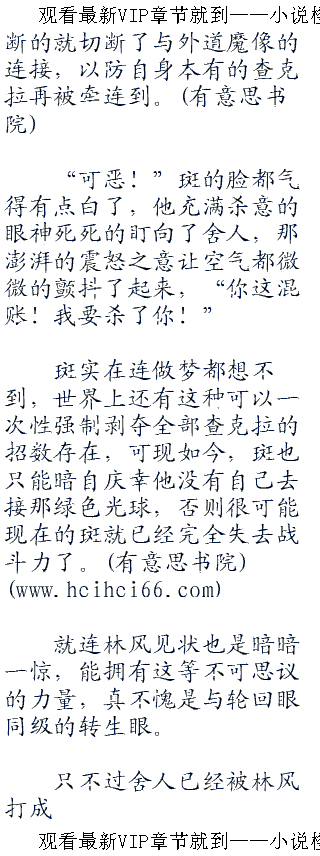 观看最新VIP章节就到——小说检
断的就切断了与外道魔像的
连接，以防自身本有的查克
拉再被牵连到。(有意思书
院)
“可恶！”斑的脸都气
得有点白了，他充满杀意的
眼神死死的盯向了舍人，那
澎湃的震怒之意让空气都微
微的颤抖了起来，“你这混
账！我要杀了你！”
斑实在连做梦都想不
到，世界上还有这种可以一
次性强制剥夺全部查克拉的
招数存在，可现如今，斑也
只能暗自庆幸他没有自己去
接那绿色光球，否则很可能
现在的斑就已经完全失去战
斗力了。(有意思书院)
(www.hcihci66.com)
就连林风见状也是暗暗
一惊，能拥有这等不可思议
的力量，真不愧是与轮回眼
同级的转生眼。
只不过舍人已经被林风
打成
观看最新VIP章节就到——小说检